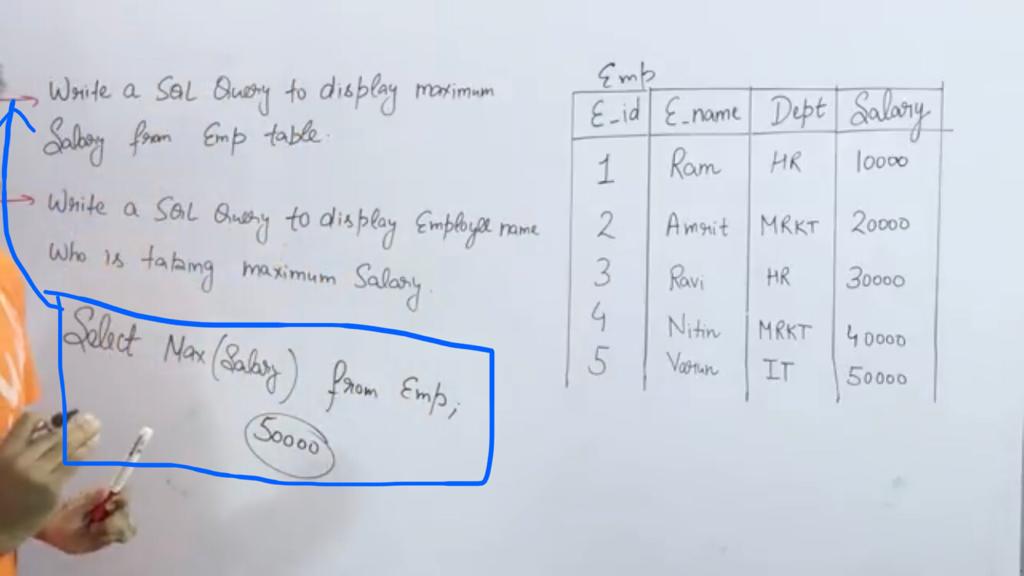 Write a SQL Query to display maximum
Salary from Emp table.
Write a SQL Query to display Employee name
Who is taking maximum Salary.
Select Max(Salary) from Emp;
50000
Emp
E_id E_name Dept Salary
1 Ram HR 10000
2 Amrit MRKT 20000
3 Ravi HR 30000
4 Nitin MRKT 40000
5 Varun IT 50000